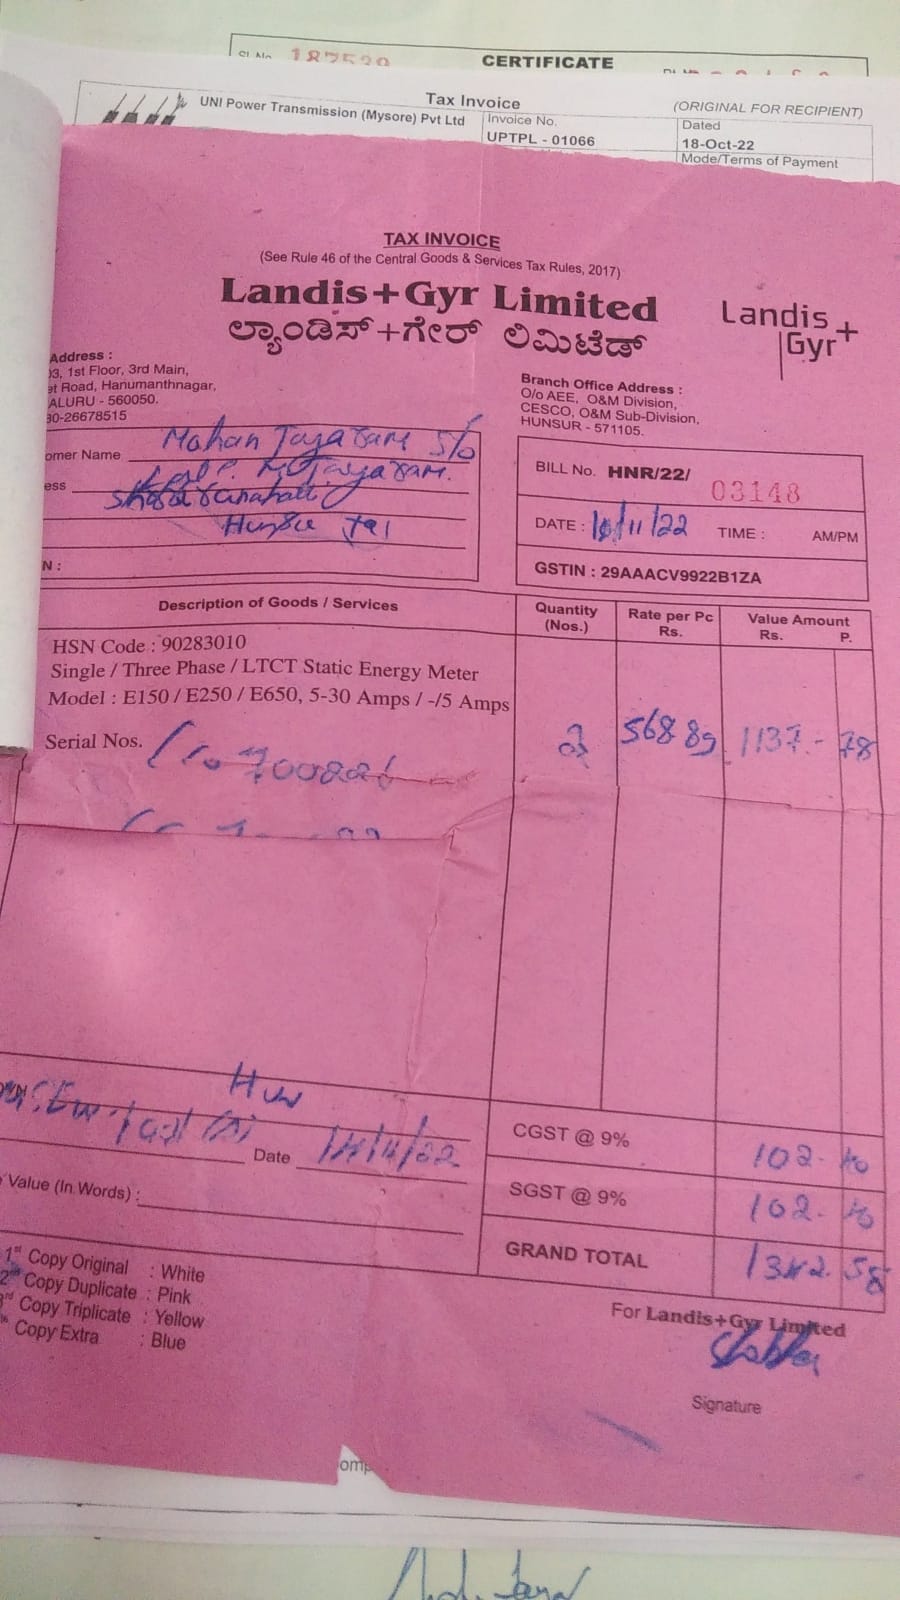 Sl.No. 187539 CERTIFICATE
Tax Invoice (ORIGINAL FOR RECIPIENT)
UNI Power Transmission (Mysore) Pvt Ltd
Invoice No.
UPTPL - 01066
Dated
18-Oct-22
Mode/Terms of Payment
TAX INVOICE
(See Rule 46 of the Central Goods & Services Tax Rules, 2017)
Landis+Gyr Limited
ಲ್ಯಾಂಡಿಸ್+ಗೇರ್ ಲಿಮಿಟೆಡ್
Landis+
Gyr
Address :
03, 1st Floor, 3rd Main,
et Road, Hanumanthnagar,
ALURU - 560050.
80-26678515
Branch Office Address :
O/o AEE, O&M Division,
CESCO, O&M Sub-Division,
HUNSUR - 571105.
omer Name Mohan Jayaram S/o
ess Jayaram.
N :
BILL No. HNR/22/ 03148
DATE : /11/22 TIME : AM/PM
GSTIN : 29AAACV9922B1ZA
Description of Goods / Services
Quantity
(Nos.)
Rate per Pc
Rs.
Value Amount
Rs. P.
HSN Code : 90283010
Single / Three Phase / LTCT Static Energy Meter
Model : E150 / E250 / E650, 5-30 Amps / -/5 Amps
Serial Nos.
2 568 89 1137.- 78
Date
CGST @ 9% 102.
SGST @ 9% 102.
GRAND TOTAL 1342. 58
Value (In Words) :
1st Copy Original : White
2nd Copy Duplicate : Pink
3rd Copy Triplicate : Yellow
Copy Extra : Blue
For Landis+Gyr Limited
Signature
omp